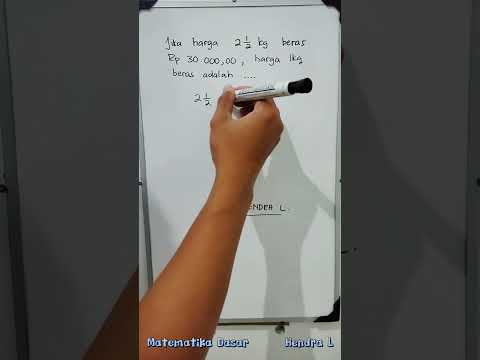 Jika harga 2 1/2 kg beras
Rp 30.000,00, harga 1kg
beras adalah ....
2 1/2
L.
Matematika Dasar Hendra L